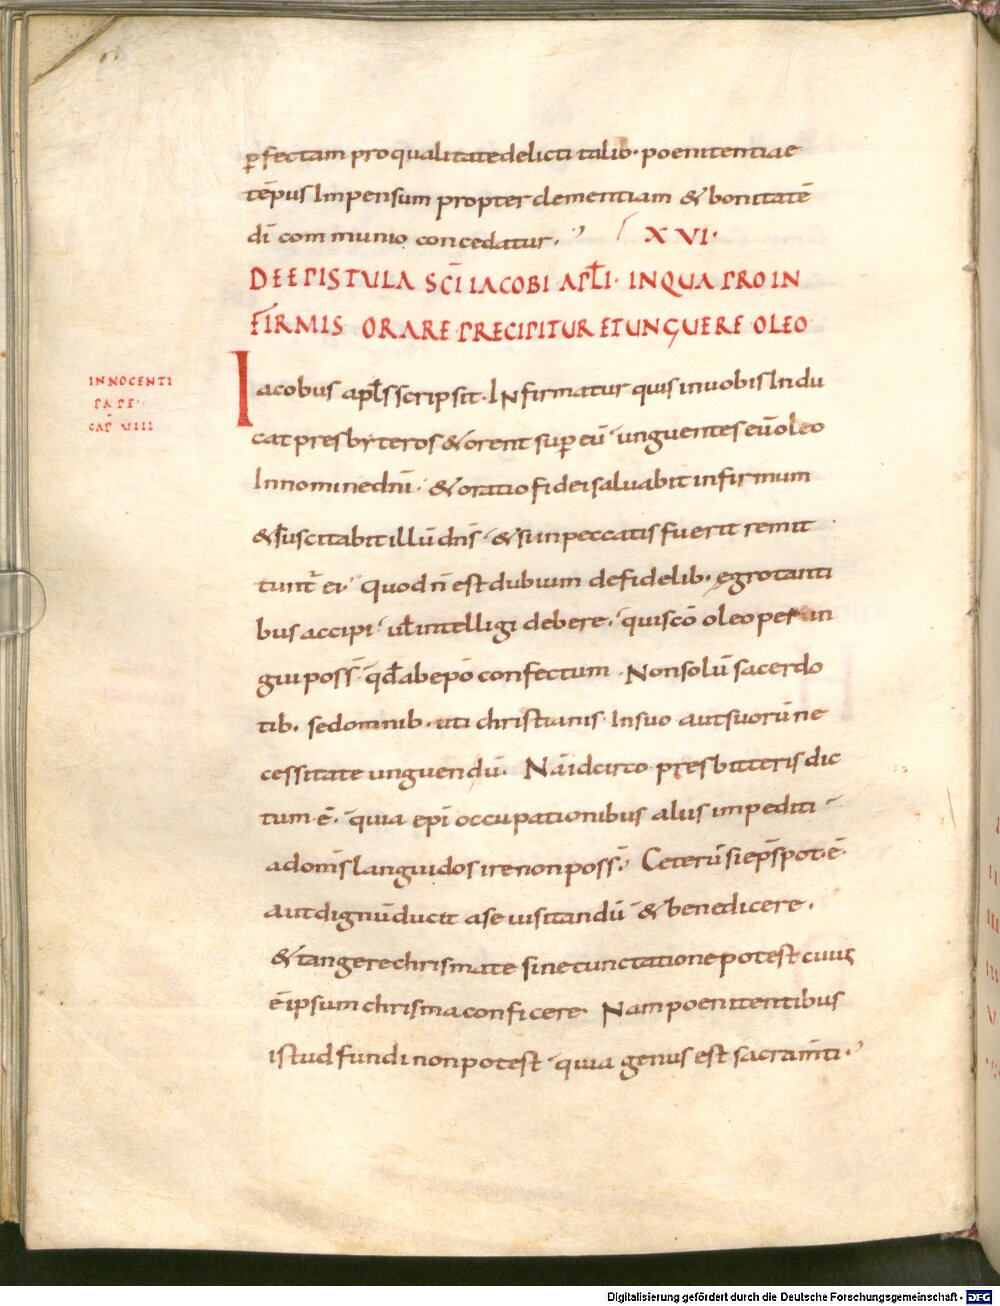 ꝑfectam proqualitatedelicti talib· poenitentiae
tēpus Impensum propter clementiam & bonitatē
dī communio concedatur· XVI·
DE EPISTULA SC̄I IACOBI APL̄I· IN QUA PRO IN
FIRMIS ORARE PRECIPITUR ET UNGUERE OLEO
INNOCENTI
PAPE·
CAP̄ VIIII
Iacobus apl̄s scripsit· Infirmatur quis inuobis Indu
cat presbyteros & orent suꝑ eū unguentes eū oleo
Innomine dn̄i· & oratio fidei saluabit infirmum
& suscitabit illū dn̄s & si inpeccatis fuerit remit
tunt̄ ei· Quod n̄ est dubium defidelib· egrotanti
bus accipi· ul̄ intelligi debere· quiscō oleo per un
gui poss̄· qd̄ abepō confectum· Non solū sacerdo
tib· sed omnib· uti christianis· Insuo aut suorū ne
cessitate unguendū· Nā idcirco presbitteris dic
tum ē· quia epī occupationibus aliis impediti
ad om̄s languidos ire non poss̄· Ceterū si ep̄s pot ē·
aut dignū ducit a se uisitandū & benedicere·
& tangere chrismate sine cunctatione potest cuius
ē ipsum chrisma conficere· Nam poenitentibus
istud fundi non potest· quia genus est sacramīti·
Digitalisierung gefördert durch die Deutsche Forschungsgemeinschaft - DFG